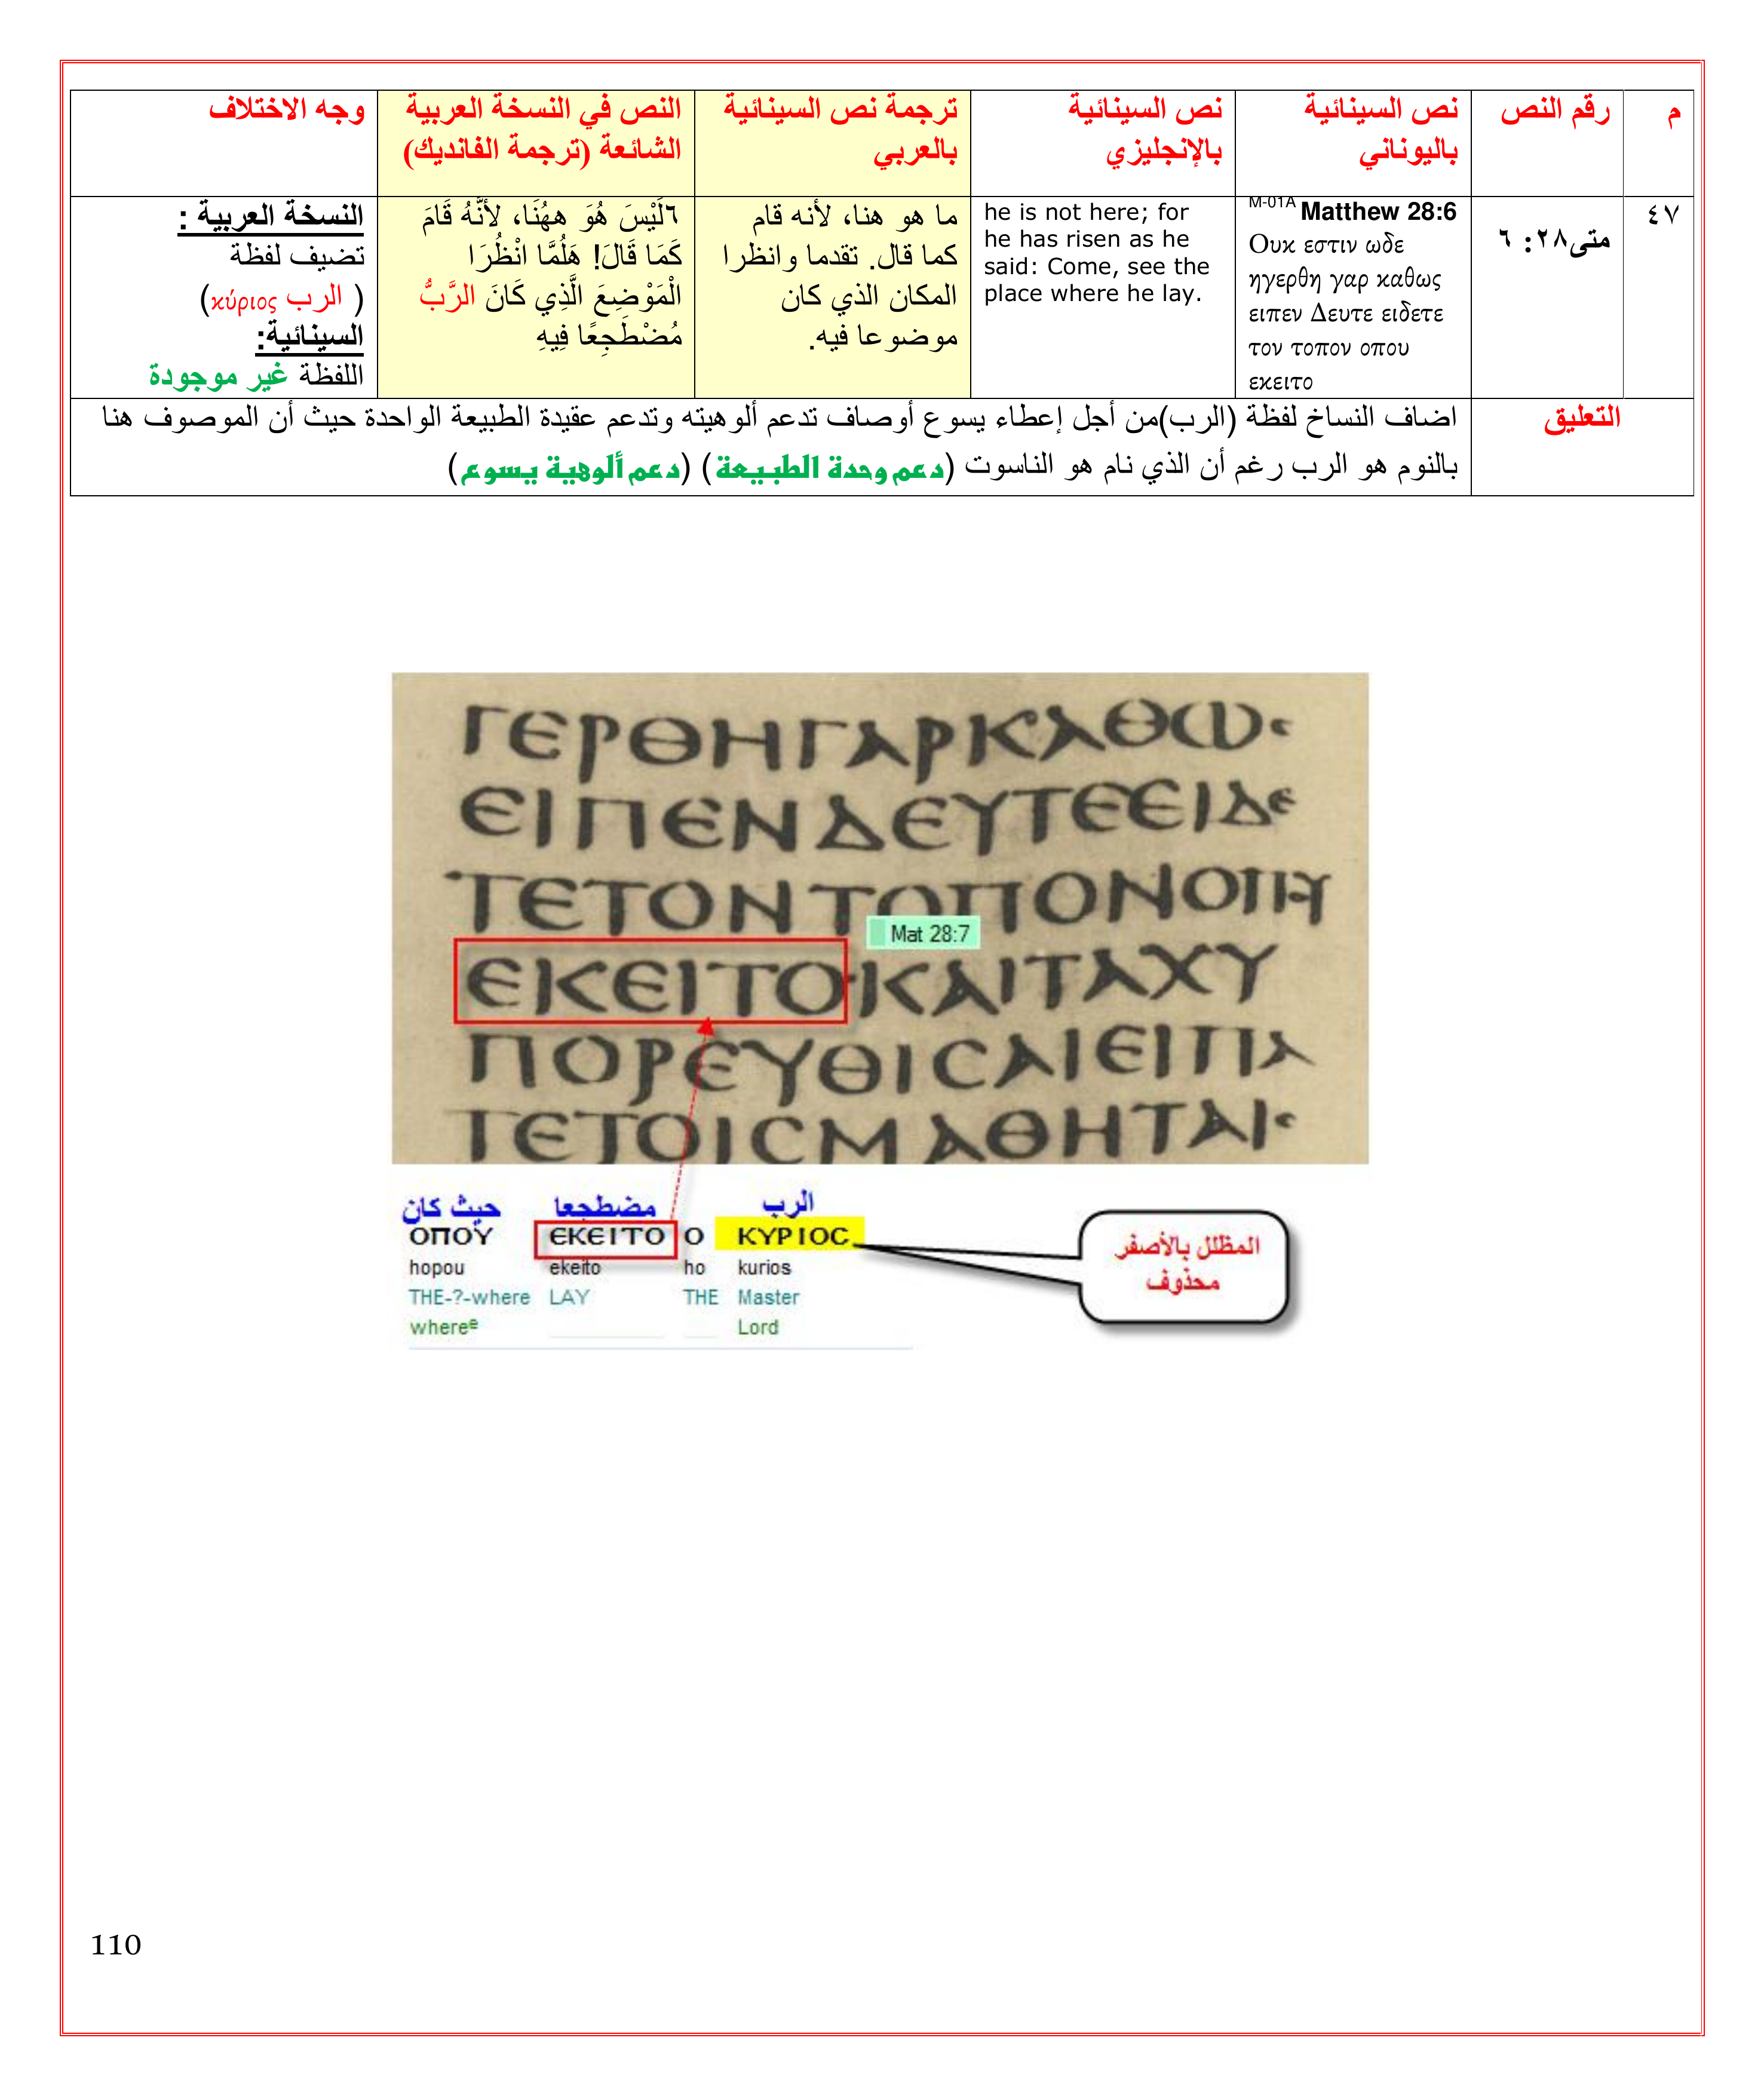 م
رقم النص
نص السينائية
باليوناني
نص السينائية
بالإنجليزي
ترجمة نص السينائية
بالعربي
النص في النسخة العربية
الشائعة (ترجمة الفانديك)
وجه الاختلاف
٤٧
متى٢٨: ٦
M-01A Matthew 28:6
Ουκ εστιν ωδε
ηγερθη γαρ καθως
ειπεν Δευτε ειδετε
τον τοπον οπου
εκειτο
he is not here; for
he has risen as he
said: Come, see the
place where he lay.
ما هو هنا، لأنه قام
كما قال. تقدما وانظرا
المكان الذي كان
موضوعا فيه.
٦لَيْسَ هُوَ ههُنَا، لأَنَّهُ قَامَ
كَمَا قَالَ! هَلُمَّا انْظُرَا
الْمَوْضِعَ الَّذِي كَانَ الرَّبُّ
مُضْطَجِعًا فِيهِ
النسخة العربية :
تضيف لفظة
( الرب κύριος)
السينائية:
اللفظة غير موجودة
التعليق
اضاف النساخ لفظة (الرب)من أجل إعطاء يسوع أوصاف تدعم ألوهيته وتدعم عقيدة الطبيعة الواحدة حيث أن الموصوف هنا
بالنوم هو الرب رغم أن الذي نام هو الناسوت (دعم وحدة الطبيعة) (دعم ألوهية يسوع)
ΓΕΡΘΗΓΑΡΚΑΘΩC
ΕΙΠΕΝΔΕΥΤΕΕΙΔΕ
ΤΕΤΟΝΤΟΠΟΝΟΠΗ
Mat 28:7
ΕΚΕΙΤΟΚΑΙΤΑΧΥ
ΠΟΡΕΥΘΙCΑΙΕΙΠΑ
ΤΕΤΟΙCΜΑΘΗΤΑΙC
حيث كان مضطجعا الرب
ΟΠΟΥ ЄΚЄΙΤΟ Ο ΚΥΡΙΟC
hopou ekeito ho kurios
THE-?-where LAY THE Master
whereᵉ Lord
المظلل بالأصفر
محذوف
110